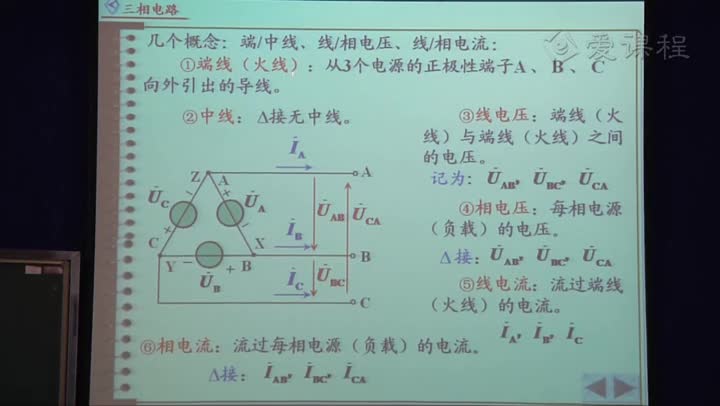 三相电路
爱课程
几个概念：端/中线、线/相电压、线/相电流：
①端线（火线）：从3个电源的正极性端子A、B、C
向外引出的导线。
②中线：Δ接无中线。
③线电压：端线（火
线）与端线（火线）之间
的电压。
记为：U̇AB, U̇BC, U̇CA
④相电压：每相电源
（负载）的电压。
Δ接：U̇AB, U̇BC, U̇CA
⑤线电流：流过端线
（火线）的电流。
İA, İB, İC
İA
Z A A
U̇C + − U̇A U̇AB U̇CA
İB
C + − X B
Y − + B
U̇B İC U̇BC
C
⑥相电流：流过每相电源（负载）的电流。
Δ接：İAB, İBC, İCA